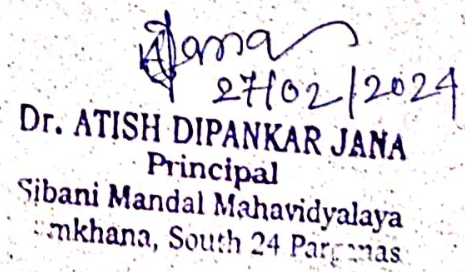 AJana
27/02/2024
Dr. ATISH DIPANKAR JANA
Principal
Sibani Mandal Mahavidyalaya
South 24 Parganas